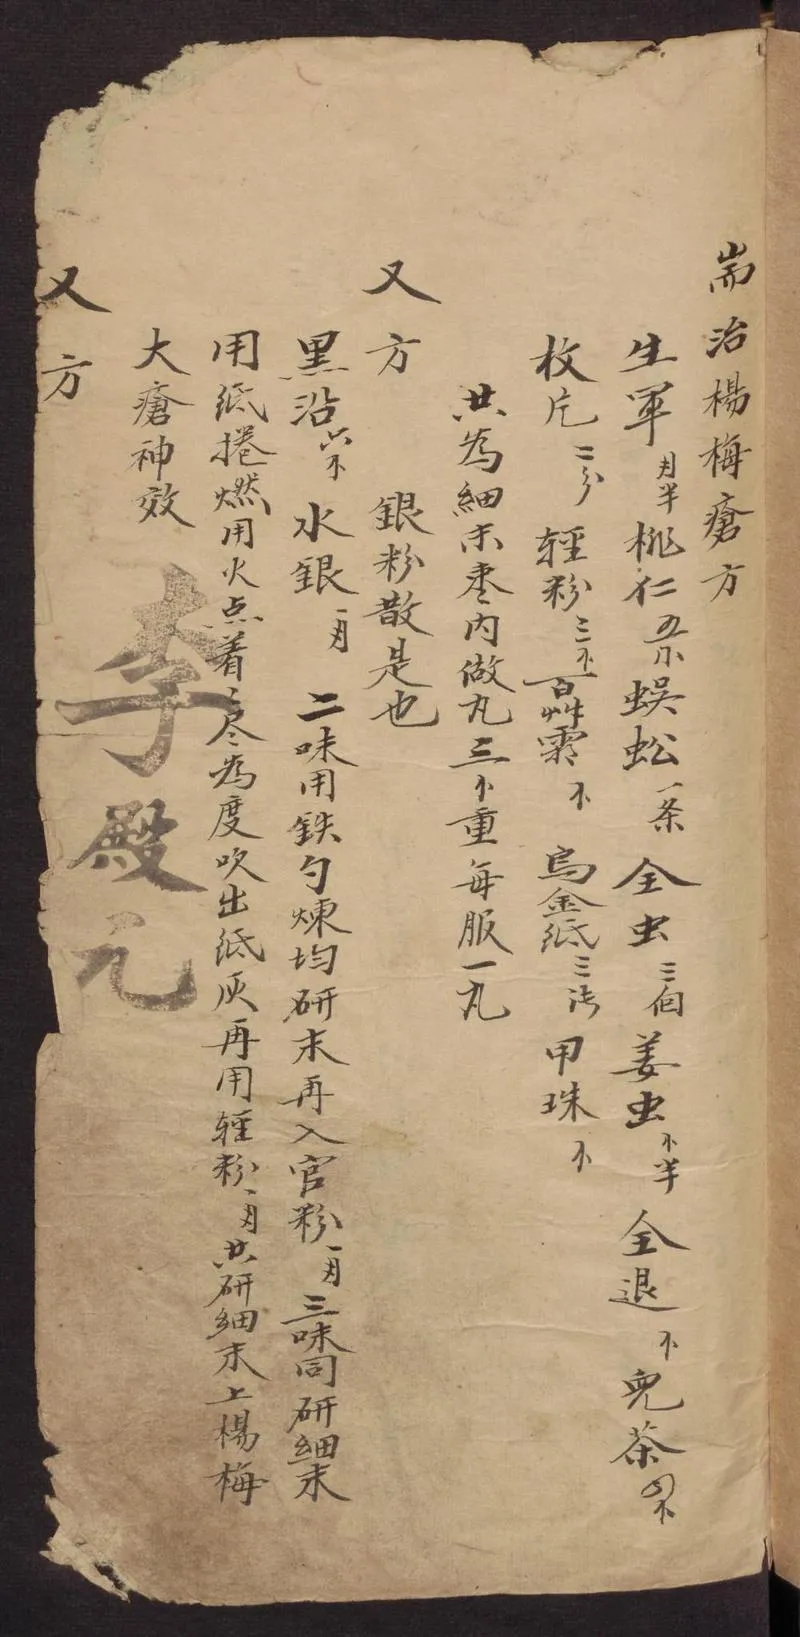 耑治楊梅瘡方
生軍 月半 桃仁 五个 蜈蚣 一条 全虫 三個 姜虫 个半 全退 个 兒茶 四个
枚片 二分 輕粉 三个 百艸霜 个 烏金紙 三张 甲珠 个
共為細末枣内做丸三个重每服一丸
又方 銀粉散是也
黑沿 六个 水銀 一月 二味用鉄勺煉均研末再入官粉 一月 三味同研細末
用紙捲燃用火点着々尽為度吹出紙灰再用輕粉 一月 共研細末上楊梅
大瘡神效
李殿元
又方